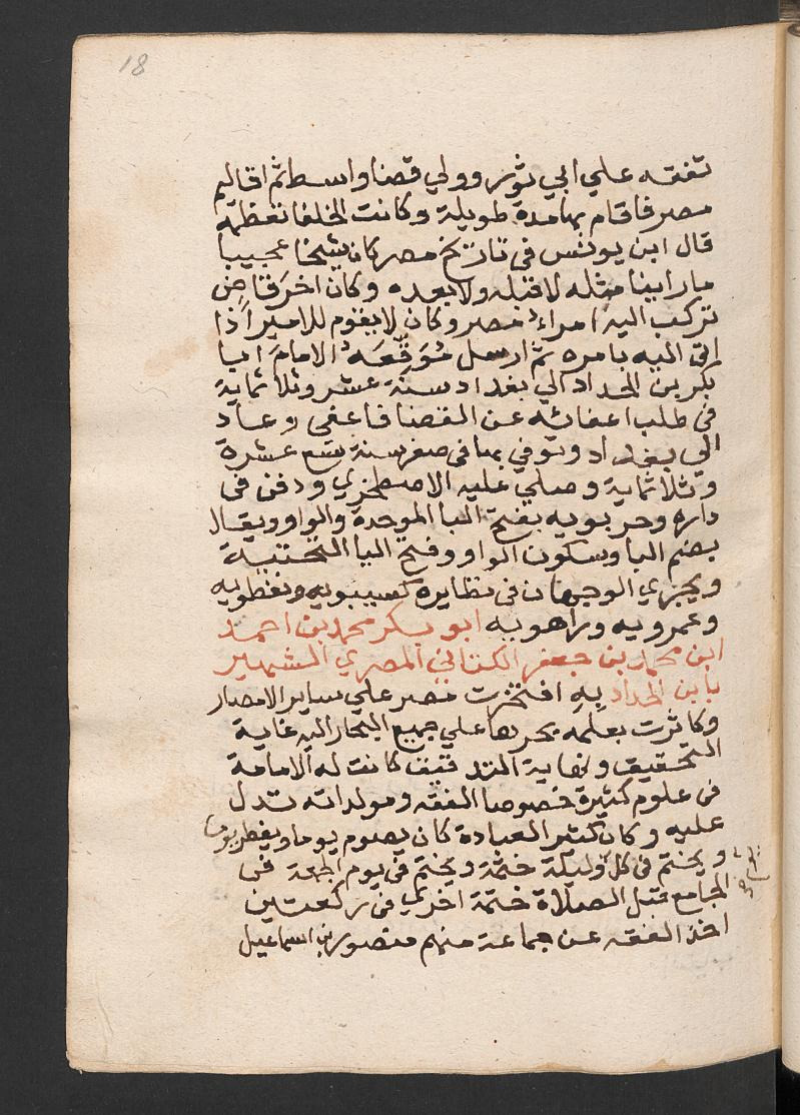 18
تفقه علي ابي ثور وولي قضا واسط ثم اقاليم
مصر فاقام بها مدة طويلة وكانت الخلفا تعظمه
قال ابن يونس في تاريخ مصر كان شيخا عجيبا
ما راينا مثله لا قبله ولا بعده وكان اخر قاض
تركب اليه امراء مصر وكان لا يقوم للامير اذا
اتي اليه بامره ثم ارسل مُوَقِّعَه الامام ابا
بكر بن الحداد الي بغداد سنة عشر وثلاثماية
في طلب اعفائه عن القضا فاعفي وعاد
الي بغداد وتوفي بها في صفر سنة تسع عشرة
وثلاثماية وصلي عليه الاصطخري ودفن في
داره وحربويه بفتح البا الموحدة والواو ويقال
بضم البا وسكون الواو وفتح اليا التحتية
ويجري الوجهان في نظايره كسيبويه ونفطويه
وعمرويه وراهويه ابو بكر محمد بن احمد
ابن محمد بن جعفر الكناني المصري الشهير
بابن الحداد بهِ افتخرت مصر علي ساير الامصار
وكاثرت بعلمه بحرها علي جميع البحار اليه غاية
التحقيق ونهاية التدقيق كانت له الامامة
في علوم كثيرة خصوصا الفقه ومولداته تدل
عليه وكان كثير العبادة كان يصوم يوما ويفطر يوما
ويختم في كل وليلة ختمة ويختم في يوم الجمعة في
الجامع قبل الصلاة ختمة اخري في ركعتين
اخذ الفقه عن جماعة منهم منصور بن اسماعيل